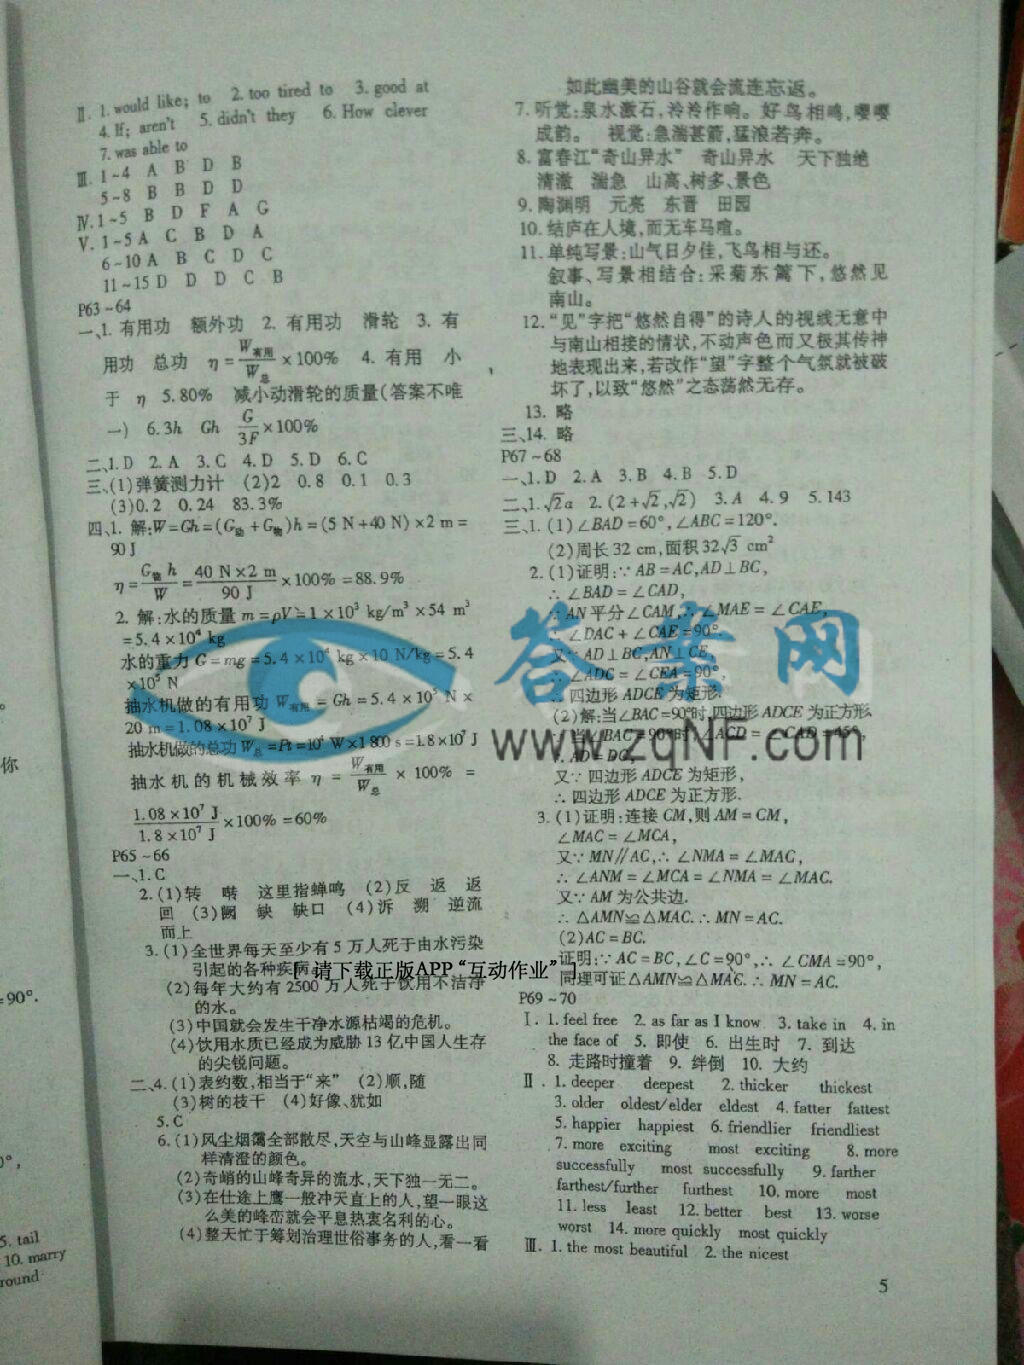 Ⅱ. 1. would like; to 2. too tired to 3. good at
4. If; aren't 5. didn't they 6. How clever
7. was able to
Ⅲ. 1~4 A B D B
5~8 B B D D
Ⅳ. 1~5 B D F A G
Ⅴ. 1~5 A C B D A
6~10 A B C D C
11~15 D D D C B
P63~64
一、1. 有用功 额外功 2. 有用功 滑轮 3. 有
用功 总功 η = W有用/W总 ×100% 4. 有用 小
于 η 5. 80% 减小动滑轮的质量(答案不唯
一) 6. 3h Gh G/3F ×100%
二、1. D 2. A 3. C 4. D 5. D 6. C
三、(1)弹簧测力计 (2)2 0.8 0.1 0.3
(3)0.2 0.24 83.3%
四、1. 解:W=Gh=(G动+G物)h=(5 N+40 N)×2 m=
90 J
η = G物 h/W = 40 N×2 m/90 J ×100% = 88.9%
2. 解:水的质量 m = ρV = 1×10³ kg/m³ ×54 m³
= 5.4×10⁴ kg
水的重力 G = mg = 5.4×10⁴ kg×10 N/kg = 5.4
×10⁵ N
抽水机做的有用功 W有用 = Gh = 5.4×10⁵ N ×
20 m = 1.08×10⁷ J
抽水机做的总功 W总 = Pt = 10⁴ W×1 800 s = 1.8×10⁷ J
抽水机的机械效率 η = W有用/W总 × 100% =
1.08×10⁷ J/1.8×10⁷ J ×100% = 60%
P65~66
一、1. C
2. (1)转 啭 这里指蝉鸣 (2)反 返 返
回 (3)阙 缺 缺口 (4)泝 溯 逆流
而上
3. (1)全世界每天至少有 5 万人死于由水污染
引起的各种疾病。
(2)每年大约有 2500 万人死于饮用不洁净
的水。
(3)中国就会发生干净水源枯竭的危机。
(4)饮用水质已经成为威胁 13 亿中国人生存
的尖锐问题。
二、4. (1)表约数,相当于“来” (2)顺,随
(3)树的枝干 (4)好像、犹如
5. C
6. (1)风尘烟霭全部散尽,天空与山峰显露出同
样清澄的颜色。
(2)奇峭的山峰奇异的流水,天下独一无二。
(3)在仕途上鹰一般冲天直上的人,望一眼这
么美的峰峦就会平息热衷名利的心。
(4)整天忙于筹划治理世俗事务的人,看一看
如此幽美的山谷就会流连忘返。
7. 听觉:泉水激石,泠泠作响。好鸟相鸣,嘤嘤
成韵。 视觉:急湍甚箭,猛浪若奔。
8. 富春江“奇山异水” 奇山异水 天下独绝
清澈 湍急 山高、树多、景色
9. 陶渊明 元亮 东晋 田园
10. 结庐在人境,而无车马喧。
11. 单纯写景:山气日夕佳,飞鸟相与还。
叙事、写景相结合:采菊东篱下,悠然见
南山。
12. “见”字把“悠然自得”的诗人的视线无意中
与南山相接的情状,不动声色而又极其传神
地表现出来,若改作“望”字整个气氛就被破
坏了,以致“悠然”之态荡然无存。
13. 略
三、14. 略
P67~68
一、1. D 2. A 3. B 4. B 5. D
二、1. √2a 2. (2+√2,√2) 3. A 4. 9 5. 143
三、1. (1)∠BAD=60°,∠ABC=120°.
(2)周长 32 cm,面积 32√3 cm²
2. (1)证明:∵AB=AC,AD⊥BC,
∴∠BAD=∠CAD,
∵AN 平分∠CAM,∴∠MAE=∠CAE,
∴∠DAC+∠CAE=90°.
又∵AD⊥BC,AN⊥CE,
∴∠ADC=∠CEA=90°,
∴四边形 ADCE 为矩形.
(2)解:当∠BAC=90°时,四边形 ADCE 为正方形.
∵当∠BAC=90°时,∠ACD=∠CAD=45°,
∴AD=DC,
又∵四边形 ADCE 为矩形,
∴四边形 ADCE 为正方形.
3. (1)证明:连接 CM,则 AM=CM,
∠MAC=∠MCA,
又∵MN∥AC,∴∠NMA=∠MAC,
∴∠ANM=∠MCA=∠NMA=∠MAC.
又∵AM 为公共边.
∴△AMN≌△MAC.∴MN=AC.
(2)AC=BC.
证明:∵AC=BC,∠C=90°,∴∠CMA=90°,
同理可证△AMN≌△MAC.∴MN=AC.
P69~70
Ⅰ. 1. feel free 2. as far as I know 3. take in 4. in
the face of 5. 即使 6. 出生时 7. 到达
8. 走路时撞着 9. 绊倒 10. 大约
Ⅱ. 1. deeper deepest 2. thicker thickest
3. older oldest/elder eldest 4. fatter fattest
5. happier happiest 6. friendlier friendliest
7. more exciting most exciting 8. more
successfully most successfully 9. farther
farthest/further furthest 10. more most
11. less least 12. better best 13. worse
worst 14. more quickly most quickly
Ⅲ. 1. the most beautiful 2. the nicest
5
答案网
www.zqNF.com
[ 请下载正版APP“互动作业” ]
你
=90°.
5. tail
10. marry
round